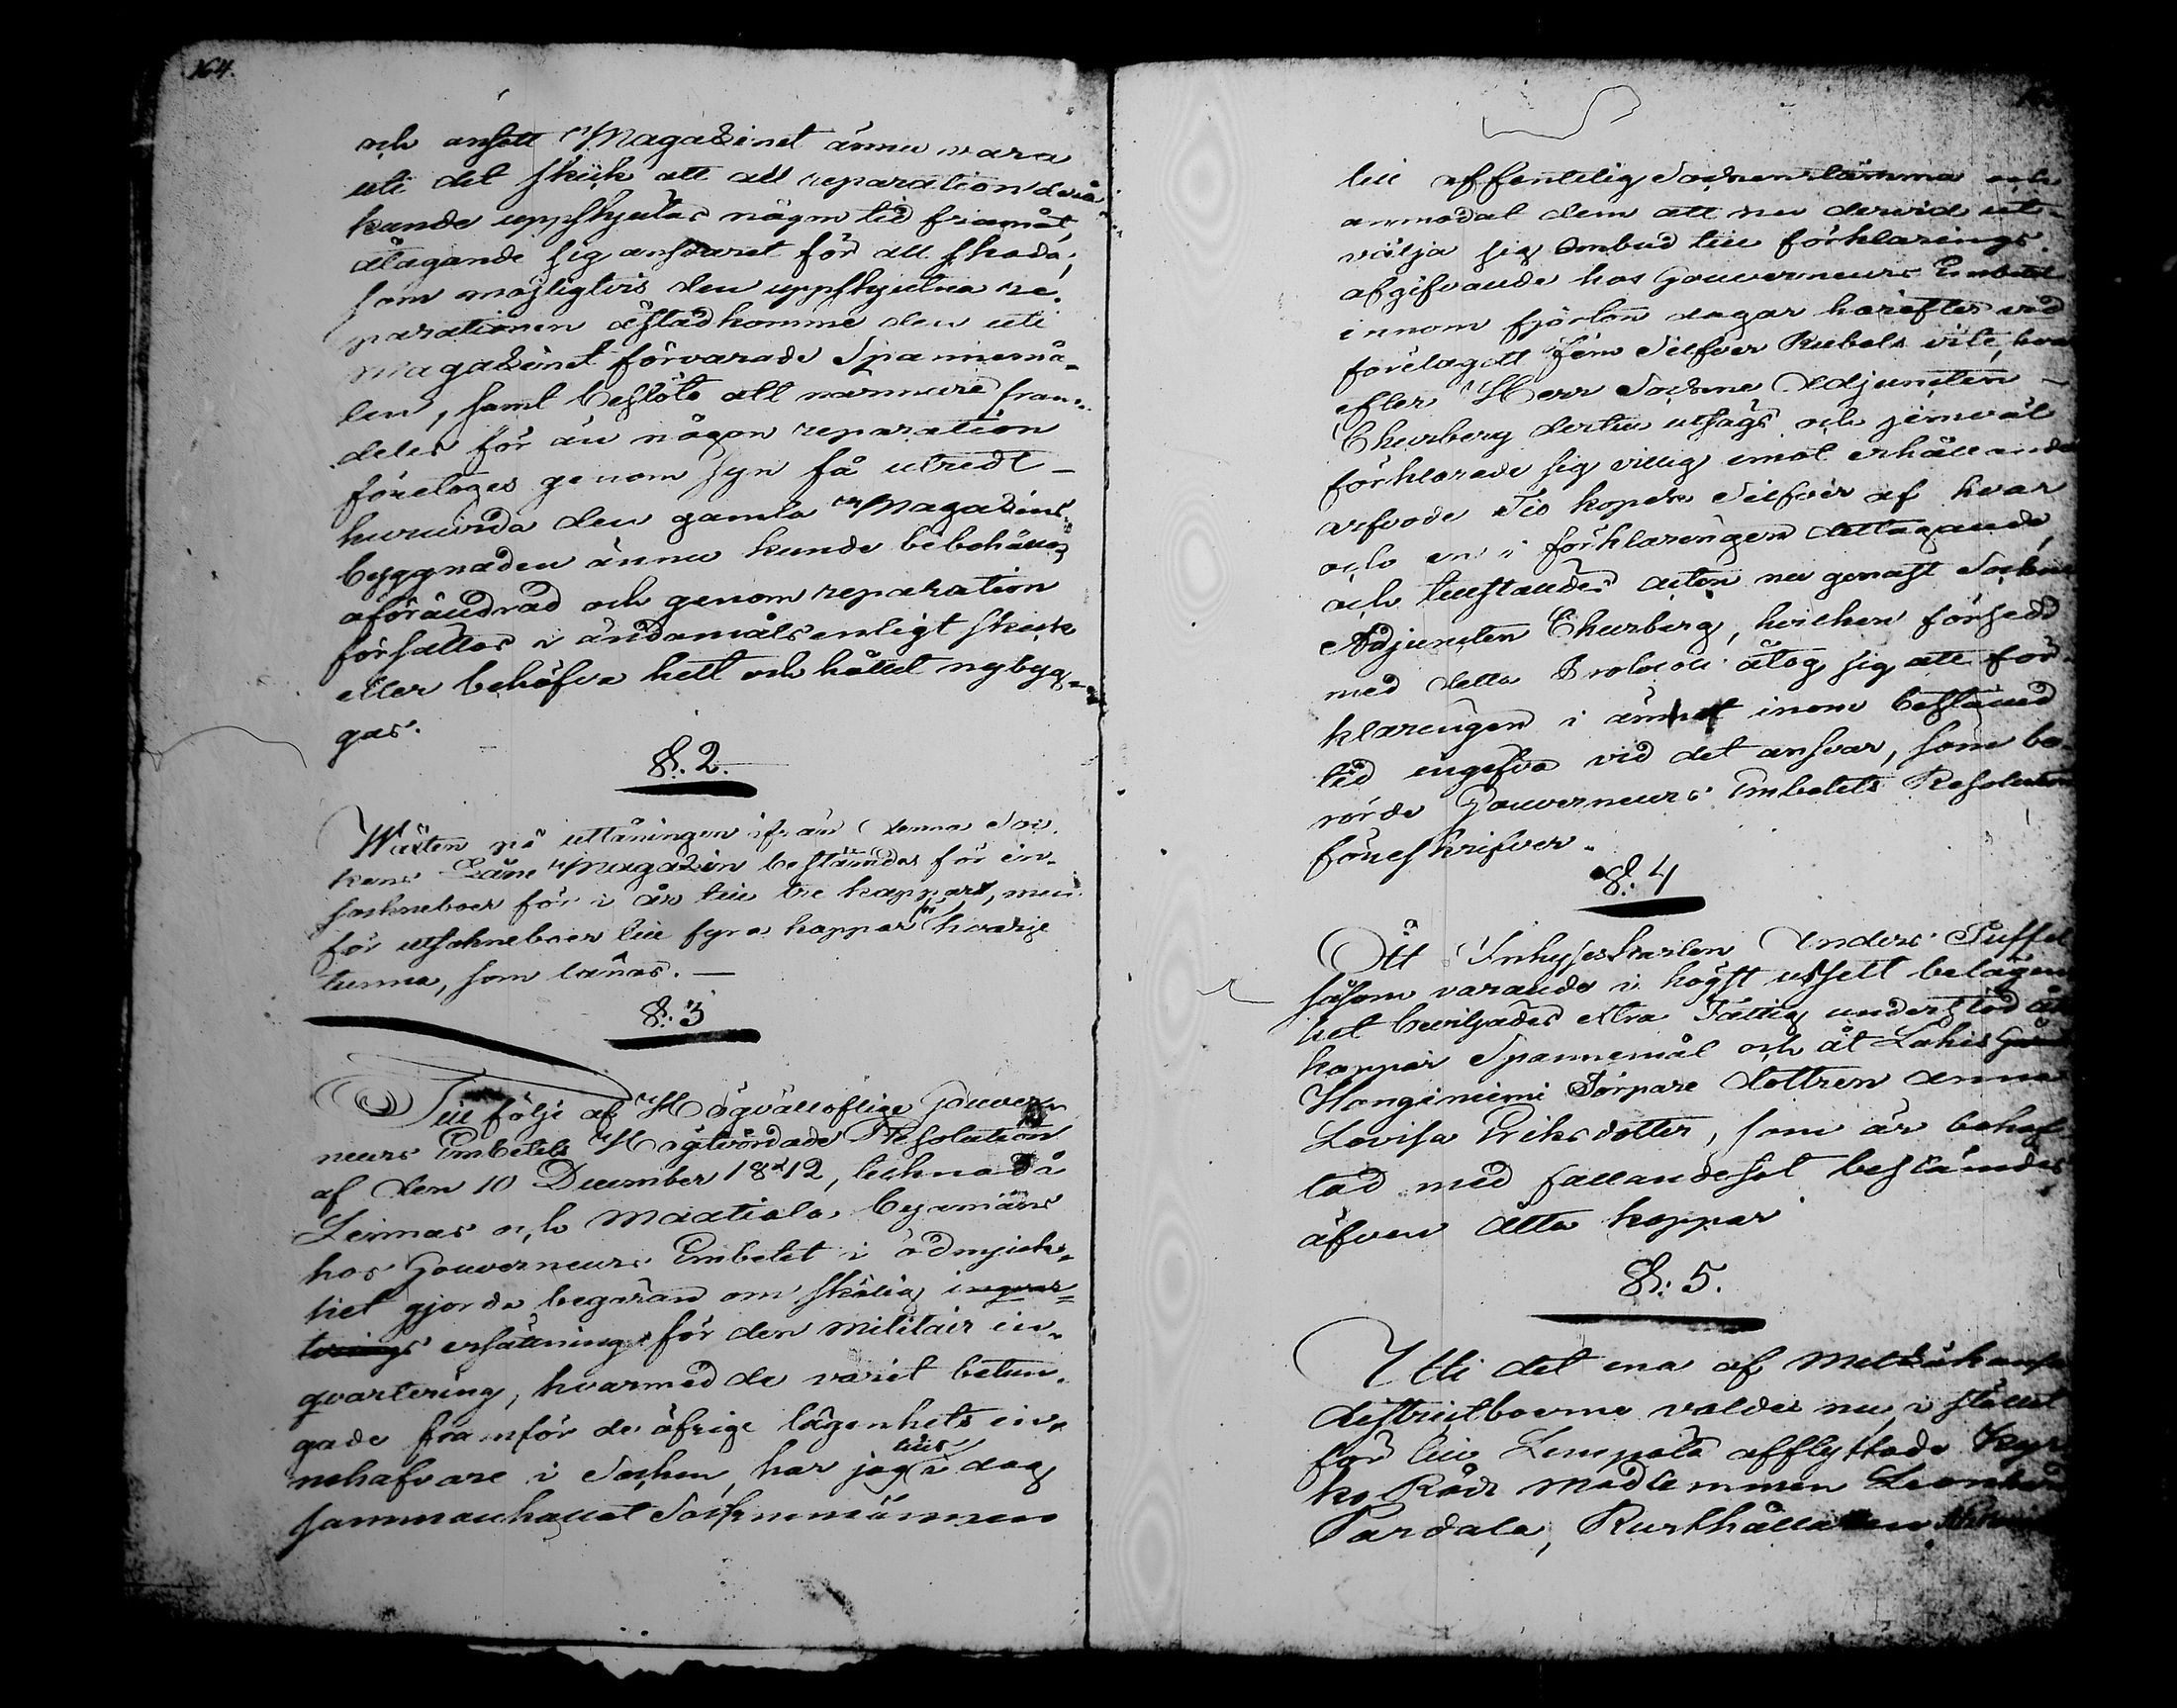 164.
och ansett Magazinet ännu vara
uti det skick att all reparation derå
kunde uppskjutas någon tid framåt,
åtagande sig ansvaret för all skada,
som möjligtvis den uppskjutna re-
parationen åstadkomme den uti
magazinet förvarade Spannemå-
len, samt beslöto att närmare fram-
deles för än någon reparation
företages genom syn få utredt
huruvida den gamla Magazins
byggnaden ännu kunde bibehållas
oförändrad och genom reparation
försättas i ändamålsenligt skick
eller behöfva helt och hållet nybyg-
gas.
§. 2.
Wäxten på utlåningen ifrån denna Soc-
kens Låne Magazin bestämdes för in-
sockneboer för i år till tre kappar, men
för utsockneboer till fyra kappar för hvarje
tunna, som lånas.
§. 3
Till följe af Högvällofliga Gouver-
neurs Embetets Högtvördade Resolution
af den 10 December 1842, tecknad å
Leimas och Maatiala byamäns
hos Gouverneurs Embetet i ödmjuk-
het gjorda begäran om skälig inqvar-
terings ersättning för den militair in-
qvartering, hvarmed de varit betun-
gade framför de öfrige lägenhets in-
nehafvare i Socknen, har jag till i dag
sammankallat Sockenmännen
till offentelig Sockenstämma och
anmodat dem att nu dervid ut-
välja sig Ombud till förklarings
afgifvande hos Gouverneurs Embetet
innom fjorton dagar härefter vid
förelagdt Fem Silfver Rubels vite, hvar
efter Herr Sockne Adjuncten
Churberg dertill utsågs och jemväl
förklarade sig villig emot erhållande
arfvode Tio kopek Silfver af hvar
och en i förklaringen dettagande,
och tillstäldes acten nu genast Sockne
Adjuncten Churberg, hvilken försedd
med detta Protocoll åtog sig att för-
klaringen i ämnet inom bestämd
tid ingifva vid det ansvar, som be-
rörde Gouverneurs Embetets Resolution
föreskrifver.
§. 4
Åt Inhyseskarlen Anders Tuffel
såsom varande i högst usselt belägen
het beviljades extra Fattig understöd åtta
kappar Spannemål och åt Lahis
Honginiemi Torpare dottren Anna
Lovisa Eriksdotter, som är behäf-
tad med fallandesot bestämdes
äfven åtta kappar
§. 5.
Uti det ena af Metsäkansa
districtboerne valdes nu i stället
för till Lempälä afflyttade Kyr-
ko Råds medlemmen Leonard
Pardala, Rusthållaren